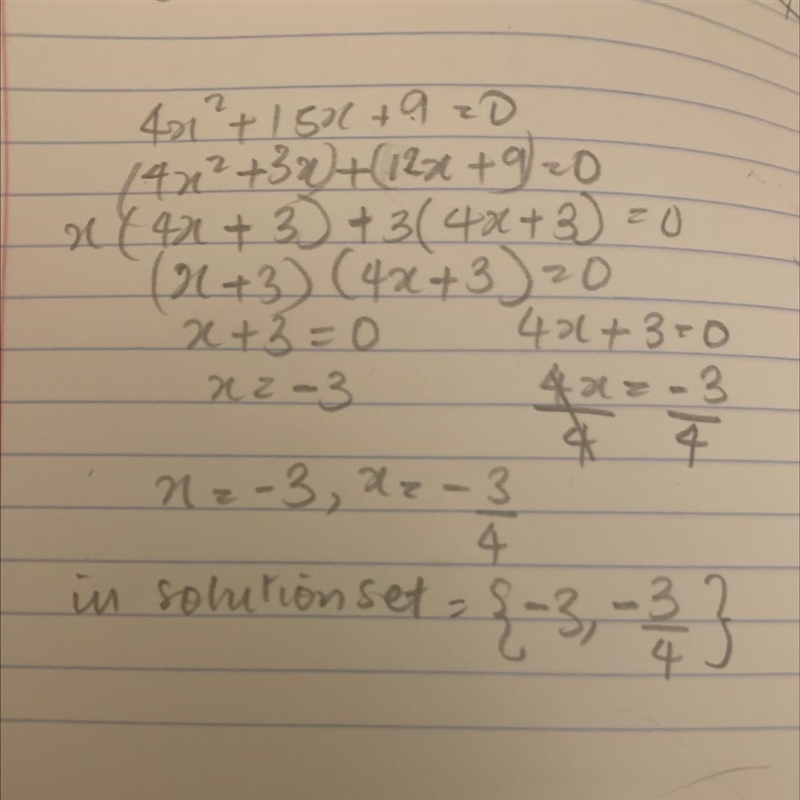 4x² + 15x + 9 = 0
(4x² + 3x) + (12x + 9) = 0
x(4x + 3) + 3(4x + 3) = 0
(x + 3)(4x + 3) = 0
x + 3 = 0 4x + 3 = 0
x = -3 4x/4 = -3/4
x = -3, x = -3/4
in solution set = {-3, -3/4}